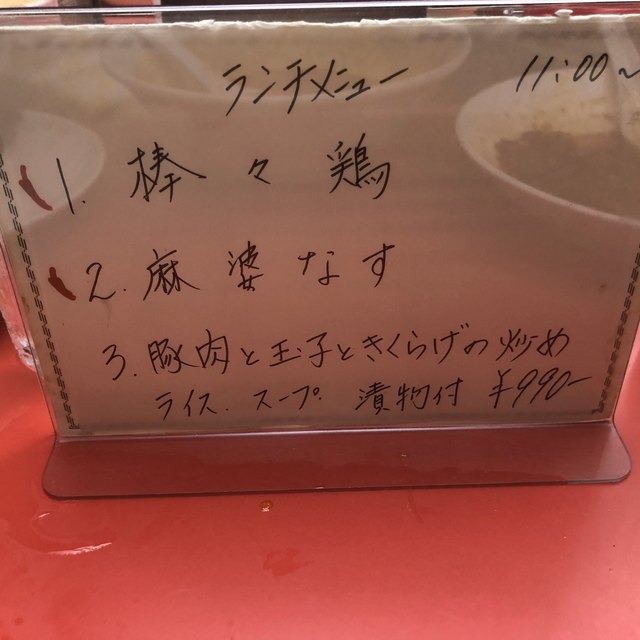 ランチメニュー 11:00～
1. 棒々鶏
2. 麻婆なす
3. 豚肉と玉子ときくらげの炒め
ライス. スープ. 漬物付 ¥990-